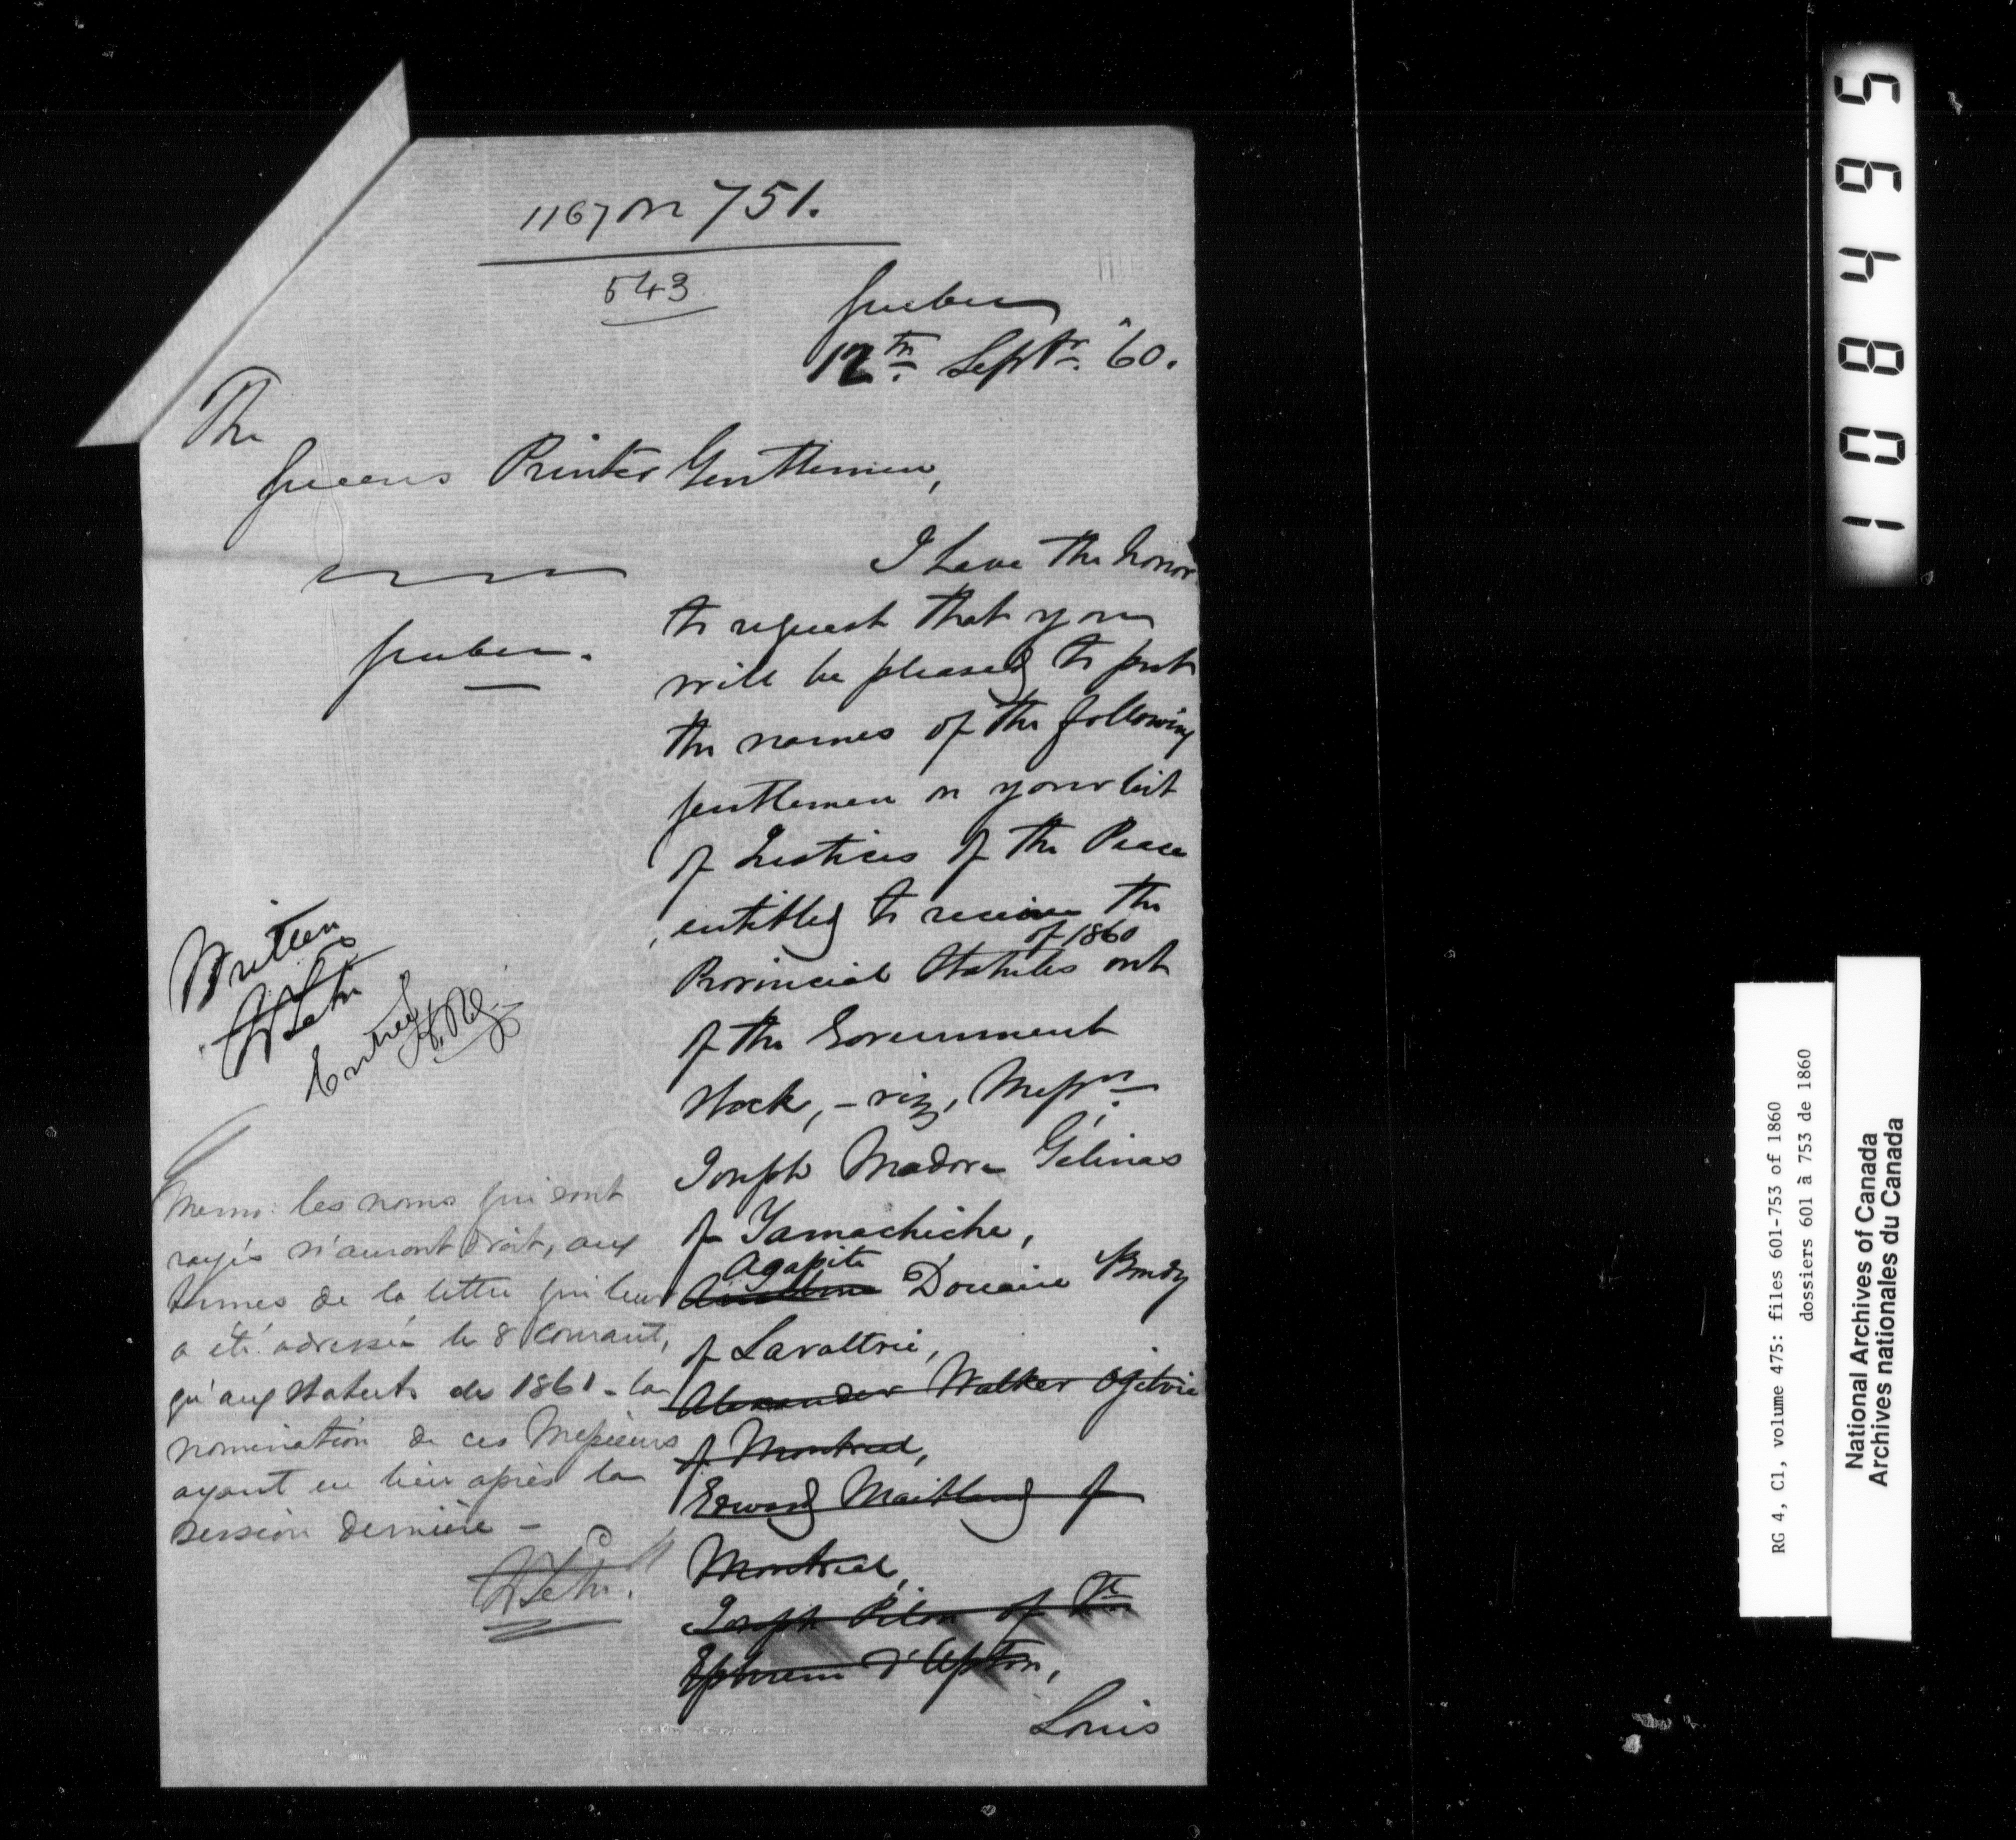 1167 on 751.
543
Quebec
12th Septr. '60.
The
Queens Printer
Quebec.
Gentlemen,
I have the honor
to request that you
will be pleased to put
the names of the following
gentlemen on your list
of Justices of the Peace
entitled to receive the
of 1860
Provincial Statutes out
of the Government
stock, - viz, Messrs.
Joseph Madore Gélinas
of Yamachiche,
Agapite
Douaire Bondy
of Lavaltrie,
Alexander Walker Ogilvie
of Montreal,
Edward Maitland of
Montreal,
Joseph Pilon of St
Ephrem d'Upton,
Louis
Written
Entered
Memo: les noms qui sont
rayés n'auront droit, aux
termes de la lettre qui leur
a été adressée le 8 courant,
qu'aux statuts de 1861 - la
nomination de ces Messieurs
ayant eu lieu après la
session dernière -
108495
RG 4, C1, volume 475: files 601-753 of 1860
dossiers 601 à 753 de 1860
National Archives of Canada
Archives nationales du Canada